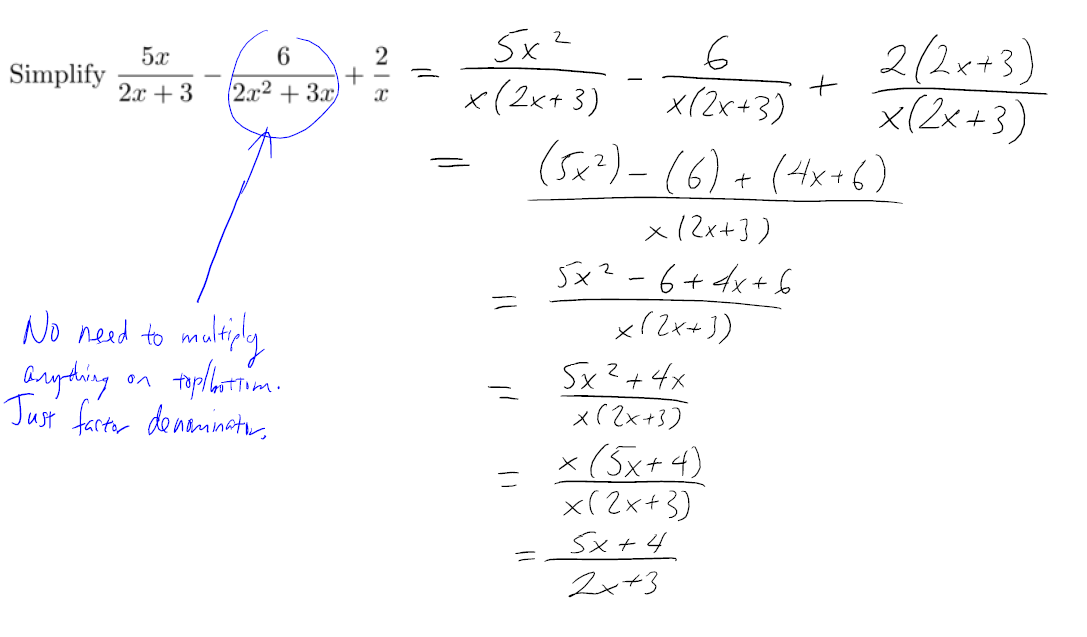 Simplify 5x/(2x + 3) − 6/(2x² + 3x) + 2/x = 5x²/(x(2x+3)) - 6/(x(2x+3)) + 2(2x+3)/(x(2x+3))
= ((5x²) - (6) + (4x+6))/(x(2x+3))
= (5x² - 6 + 4x + 6)/(x(2x+3))
= (5x² + 4x)/(x(2x+3))
= x(5x+4)/(x(2x+3))
= (5x + 4)/(2x+3)
No need to multiply
anything on top/bottom.
Just factor denominator.